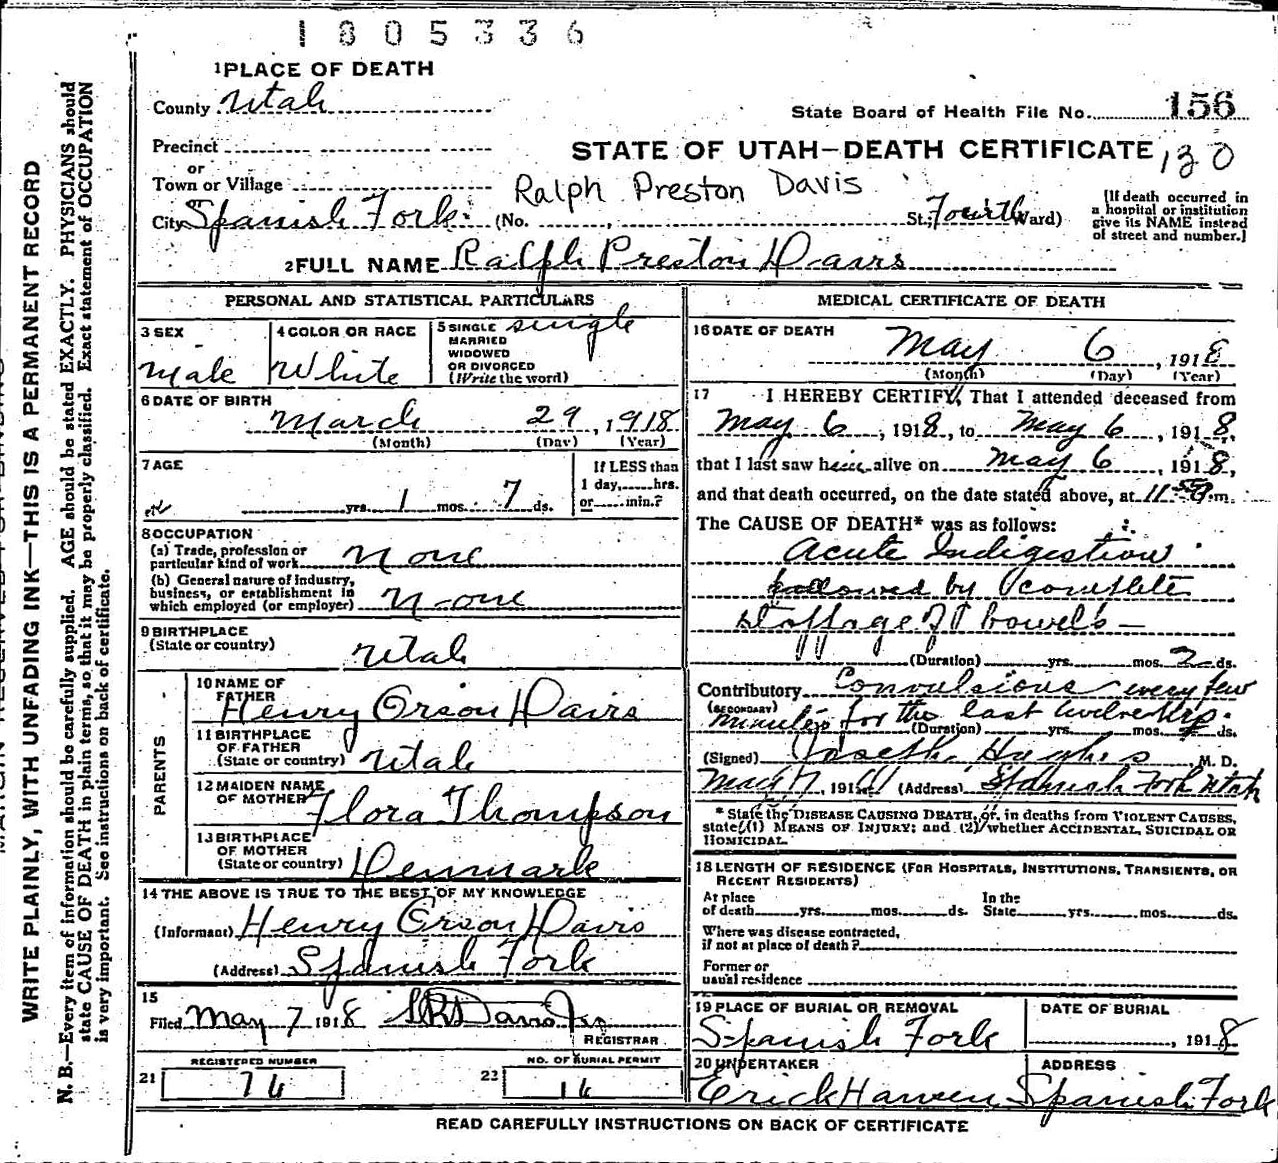 1805336
1 PLACE OF DEATH
County Utah
State Board of Health File No. 156
Precinct
STATE OF UTAH—DEATH CERTIFICATE 130
or
Town or Village
Ralph Preston Davis
City Spanish Fork (No. , St. Fourth Ward)
[If death occurred in
a hospital or institution
give its NAME instead
of street and number.]
2 FULL NAME Ralph Preston Davis
PERSONAL AND STATISTICAL PARTICULARS
3 SEX
Male
4 COLOR OR RACE
White
5 SINGLE single
MARRIED
WIDOWED
OR DIVORCED
(Write the word)
6 DATE OF BIRTH
March 29, 1918
(Month) (Day) (Year)
7 AGE
yrs. 1 mos. 7 ds.
If LESS than
1 day, hrs.
or min.?
8 OCCUPATION
(a) Trade, profession or
particular kind of work None
(b) General nature of industry,
business, or establishment in
which employed (or employer) None
9 BIRTHPLACE
(State or country) Utah
PARENTS
10 NAME OF
FATHER
Henry Orson Davis
11 BIRTHPLACE
OF FATHER
(State or country) Utah
12 MAIDEN NAME
OF MOTHER Flora Thompson
13 BIRTHPLACE
OF MOTHER
(State or country) Denmark
14 THE ABOVE IS TRUE TO THE BEST OF MY KNOWLEDGE
(Informant) Henry Orson Davis
(Address) Spanish Fork
15
Filed May 7 1918
REGISTRAR
REGISTERED NUMBER
21 74
NO. OF BURIAL PERMIT
22 14
MEDICAL CERTIFICATE OF DEATH
16 DATE OF DEATH
May 6, 1918
(Month) (Day) (Year)
17 I HEREBY CERTIFY, That I attended deceased from
May 6, 1918, to May 6, 1918,
that I last saw him alive on May 6, 1918,
and that death occurred, on the date stated above, at 11 m.
The CAUSE OF DEATH* was as follows:
Acute Indigestion
followed by complete
stoppage of bowels —
(Duration) yrs. mos. 2 ds.
Contributory Convulsions every few
(SECONDARY)
minutes for the last twelve hrs.
(Duration) yrs. mos. ds.
(Signed) Joseph Hughes, M. D.
May 7, 191 (Address) Spanish Fork Utah
* State the DISEASE CAUSING DEATH, or, in deaths from VIOLENT CAUSES,
state (1) MEANS OF INJURY; and (2) whether ACCIDENTAL, SUICIDAL OR
HOMICIDAL.
18 LENGTH OF RESIDENCE (FOR HOSPITALS, INSTITUTIONS, TRANSIENTS, OR
RECENT RESIDENTS)
At place In the
of death yrs. mos. ds. State yrs. mos. ds.
Where was disease contracted,
if not at place of death?
Former or
usual residence
19 PLACE OF BURIAL OR REMOVAL
Spanish Fork
DATE OF BURIAL
, 1918
20 UNDERTAKER
Erick Hansen
ADDRESS
Spanish Fork
READ CAREFULLY INSTRUCTIONS ON BACK OF CERTIFICATE
WRITE PLAINLY, WITH UNFADING INK—THIS IS A PERMANENT RECORD
N. B.—Every item of information should be carefully supplied. AGE should be stated EXACTLY. PHYSICIANS should
state CAUSE OF DEATH in plain terms, so that it may be properly classified. Exact statement of OCCUPATION
is very important. See instructions on back of certificate.